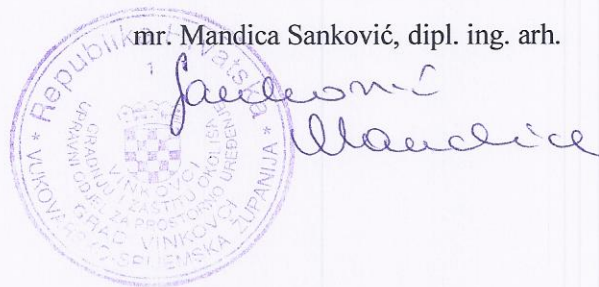 mr. Mandica Sanković, dipl. ing. arh.
Republika Hrvatska
1
VUKOVARSKO-SRIJEMSKA ŽUPANIJA
GRAD VINKOVCI
UPRAVNI ODJEL ZA PROSTORNO UREĐENJE
GRADNJU I ZAŠTITU OKOLIŠA
VINKOVCI
Sanković
Mandica